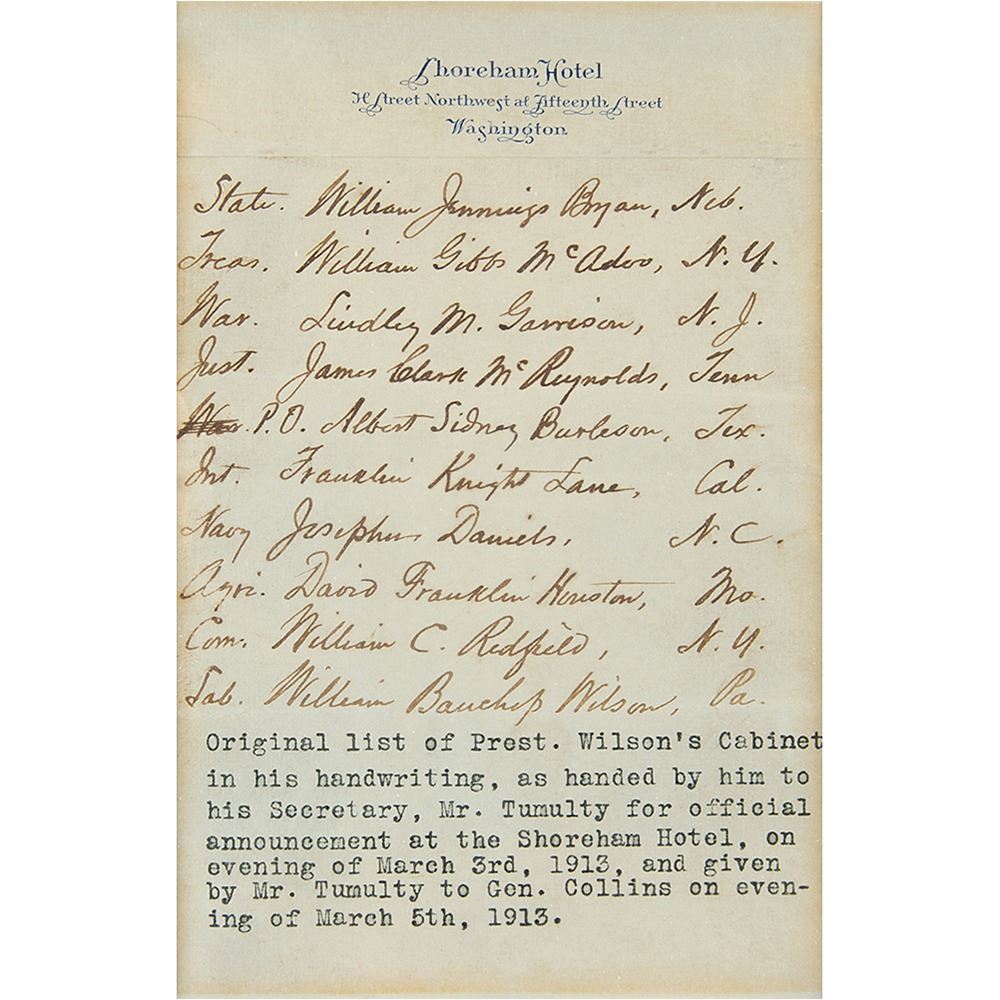 Shoreham Hotel
H Street Northwest at Fifteenth Street
Washington
State. William Jennings Bryan, Neb.
Treas. William Gibbs McAdoo, N.Y.
War. Lindley M. Garrison, N.J.
Just. James Clark McReynolds, Tenn
War. P.O. Albert Sidney Burleson, Tex.
Int. Franklin Knight Lane, Cal.
Navy Josephus Daniels, N.C.
Agri. David Franklin Houston, Mo.
Com. William C. Redfield, N.Y.
Lab. William Bauchop Wilson, Pa.
Original list of Prest. Wilson's Cabinet
in his handwriting, as handed by him to
his Secretary, Mr. Tumulty for official
announcement at the Shoreham Hotel, on
evening of March 3rd, 1913, and given
by Mr. Tumulty to Gen. Collins on even-
ing of March 5th, 1913.